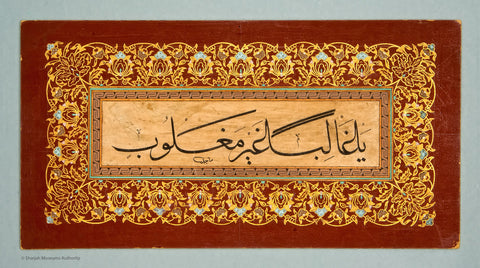 يا غالبا غير مغلوب
© Sharjah Museums Authority